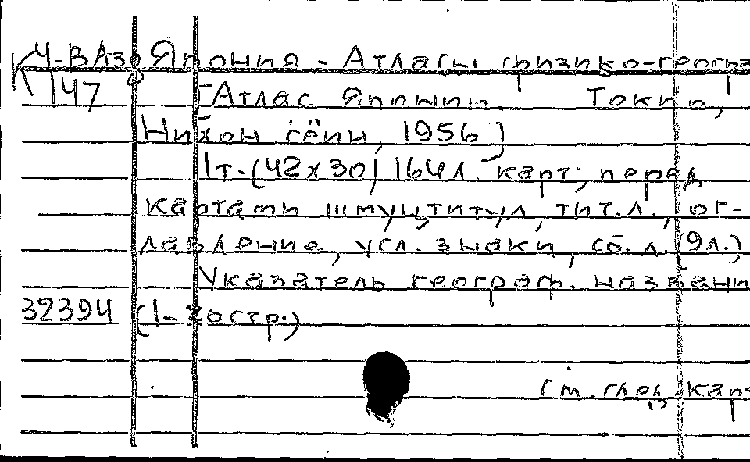 Ч-ВАз Япония - Атласы физико-геогра
К 147 [Атлас Японии. Токио,
Нихон сёин, 1956]
1т.(42х30) 164л. карт; перед
картами шмуцтитул, тит.л., ог-
лавление, усл. знаки, сб. л. (9л.)
Указатель географ. названи
32394 (1-20стр.)
См. след. кар